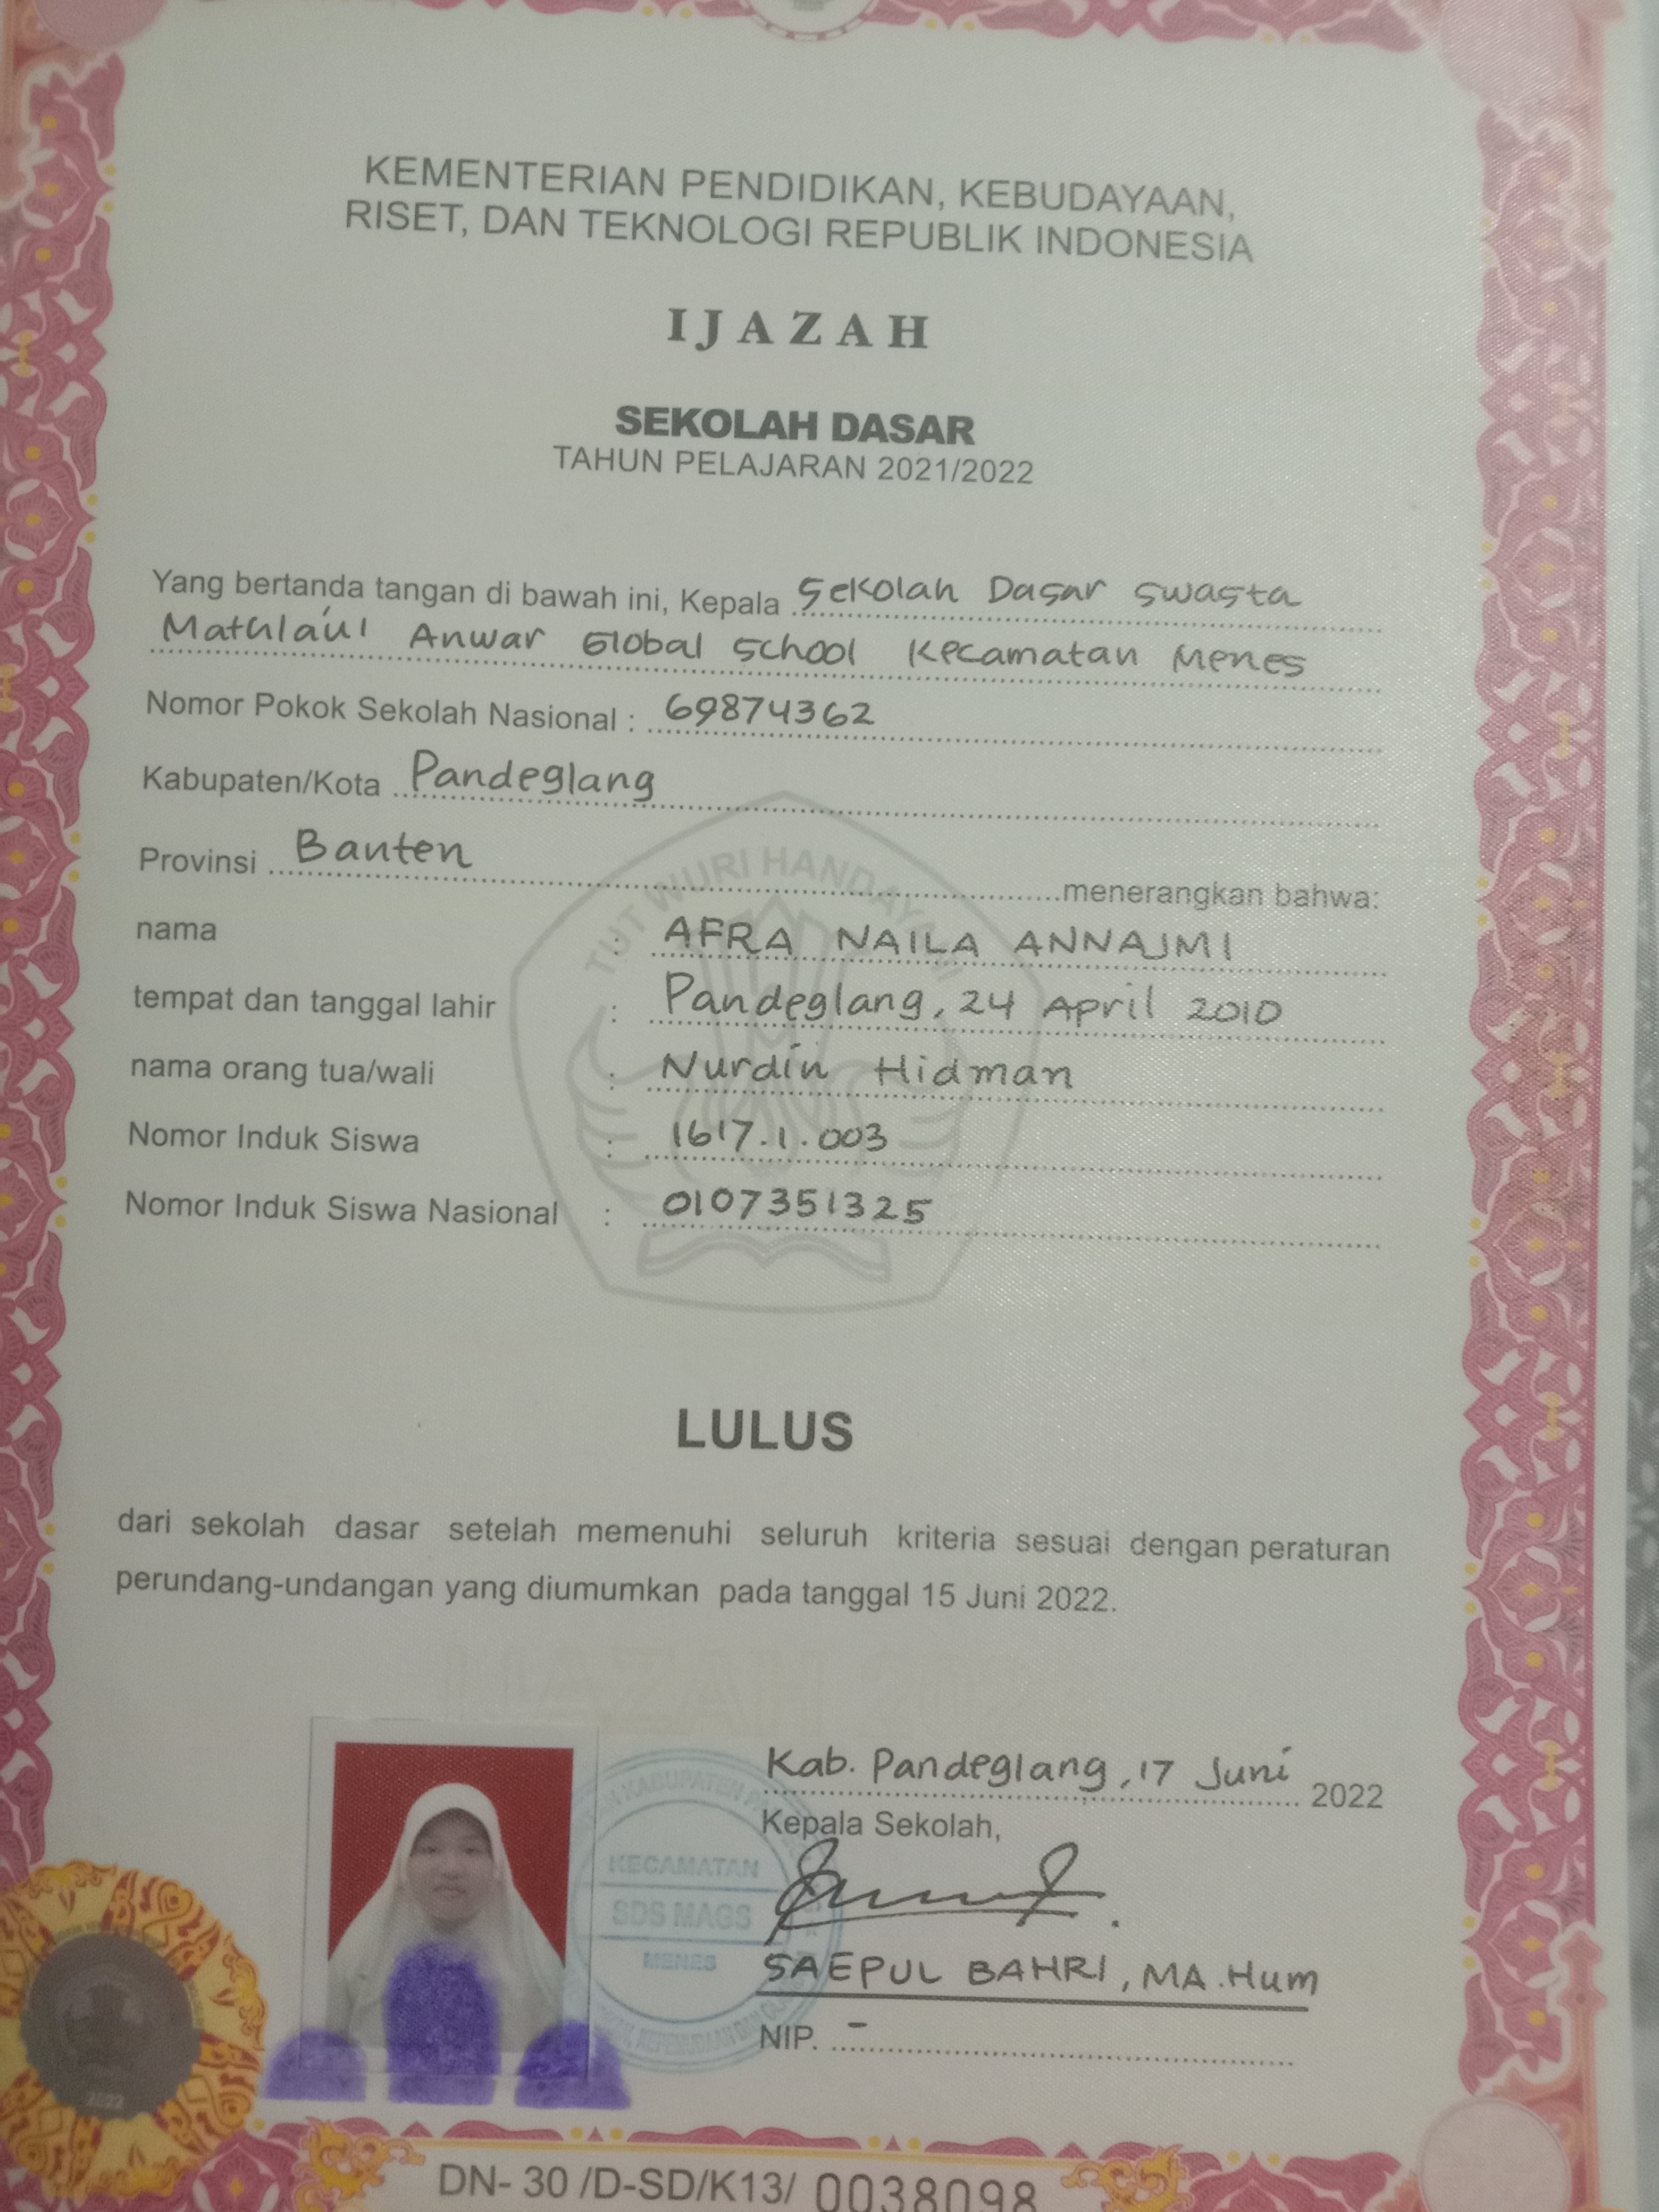 KEMENTERIAN PENDIDIKAN, KEBUDAYAAN,
RISET, DAN TEKNOLOGI REPUBLIK INDONESIA
IJAZAH
SEKOLAH DASAR
TAHUN PELAJARAN 2021/2022
Yang bertanda tangan di bawah ini, Kepala Sekolah Dasar Swasta
Mathla'ul Anwar Global School Kecamatan Menes
Nomor Pokok Sekolah Nasional : 69874362
Kabupaten/Kota Pandeglang
Provinsi Banten menerangkan bahwa:
TUT WURI HANDAYANI
nama : AFRA NAILA ANNAJMI
tempat dan tanggal lahir : Pandeglang, 24 April 2010
nama orang tua/wali : Nurdin Hidman
Nomor Induk Siswa : 1617.1.003
Nomor Induk Siswa Nasional : 0107351325
LULUS
dari sekolah dasar setelah memenuhi seluruh kriteria sesuai dengan peraturan
perundang-undangan yang diumumkan pada tanggal 15 Juni 2022.
Kab. Pandeglang, 17 Juni 2022
Kepala Sekolah,
KABUPATEN
KECAMATAN
SDS MAGS
MENES
SAEPUL BAHRI, MA.Hum
NIP. -
2022
DN- 30 /D-SD/K13/ 0038098